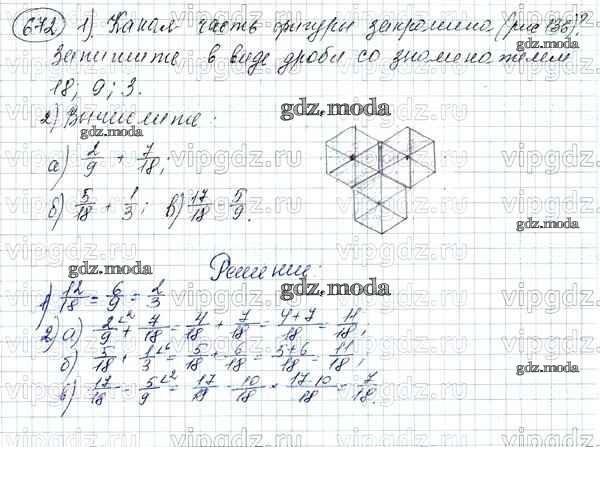 672 1) Какая часть фигуры закрашена (рис 136)?
Запишите в виде дроби со знаменателем
18; 9; 3.
2) Вычислите:
а) 2/9 + 7/18;
б) 5/18 + 1/3; в) 17/18 - 5/9.
Решение:
1) 12/18 = 6/9 = 2/3
2) а) 2/9 + 7/18 = 4/18 + 7/18 = 4+7/18 = 11/18;
б) 5/18 + 1/3 = 5/18 + 6/18 = 5+6/18 = 11/18;
в) 17/18 - 5/9 = 17/18 - 10/18 = 17-10/18 = 7/18.
gdz.moda
vipgdz.ru